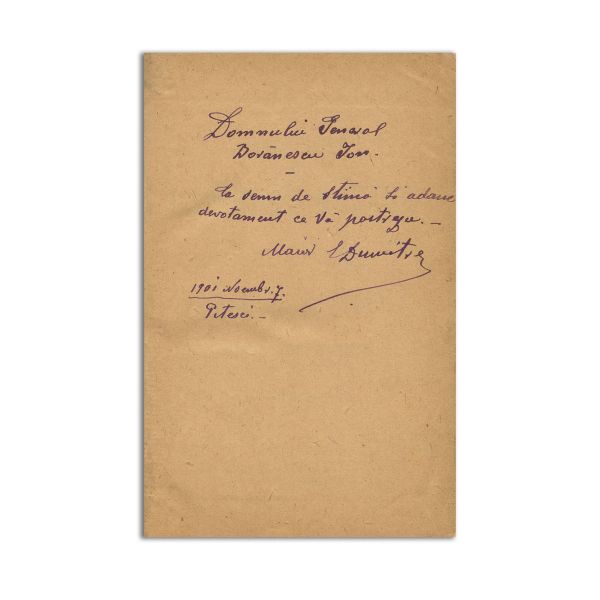 Domnului General
Borănescu Ion.
—
Ca semn de stimă și adânc
devotament ce Vă port rogu. —
Maior Dumitre
1901 Noembr. 7.
Pitesci. —